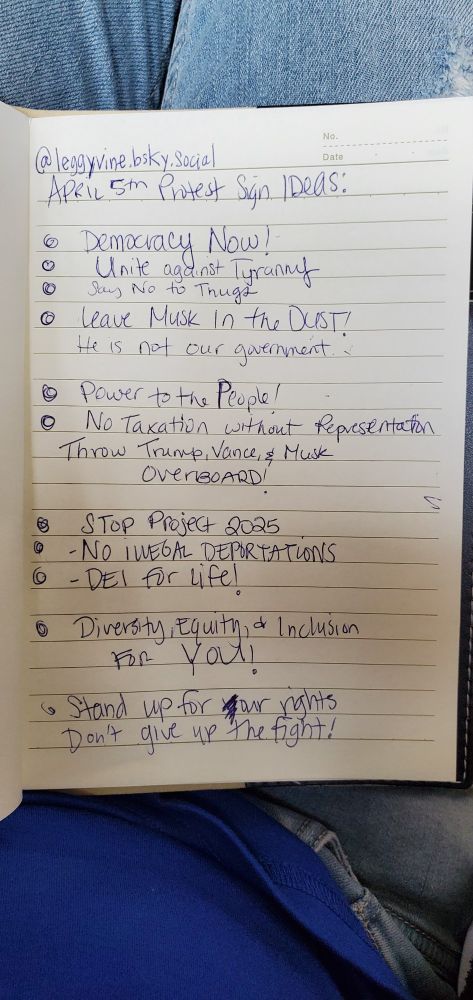 No.
Date
@leggyvine.bsky.social
April 5th Protest Sign Ideas:
Democracy Now!
Unite against Tyranny
Say No to Thugs
Leave Musk In the DUST!
He is not our government.
Power to the People!
No Taxation without Representation
Throw Trump, Vance, & Musk
OVERBOARD!
STOP Project 2025
- NO ILLEGAL DEPORTATIONS
- DEI for Life!
Diversity, Equity, & Inclusion
FOR YOU!
Stand up for your rights
Don't give up the fight!